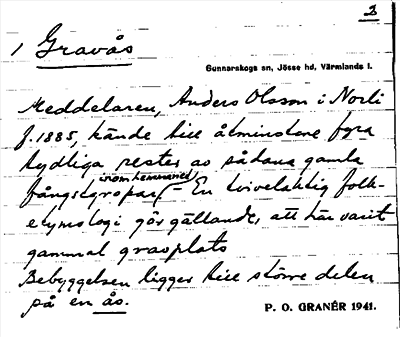 2
1 Gravås
Gunnarskogs sn, Jösse hd, Värmlands l.
Meddelaren, Anders Olsson i Norli
f. 1885, kände till åtminstone fyra
tydliga rester av sådana gamla
inom hemmanet
fångstgropar. – En tvivelaktig folk-
etymologi gör gällande, att här varit
gammal gravplats
Bebyggelsen ligger till större delen
på en ås.
P. O. GRANÉR 1941.